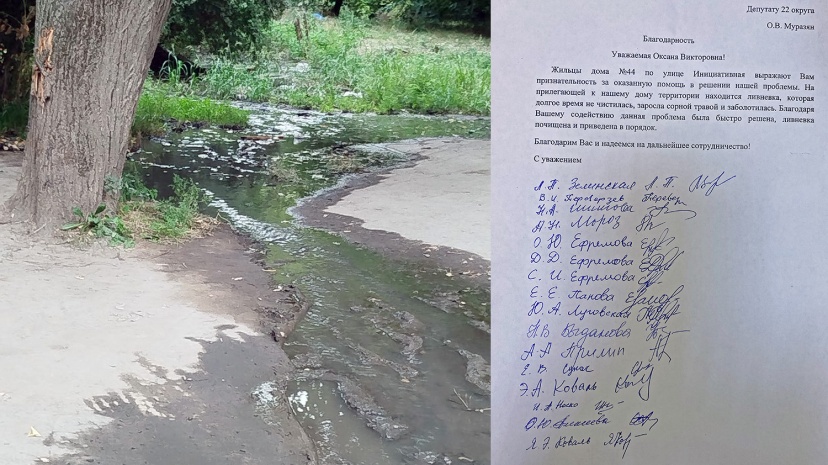 Депутату 22 округа
О.В. Муразян
Благодарность
Уважаемая Оксана Викторовна!
Жильцы дома №44 по улице Инициативная выражают Вам
признательность за оказанную помощь в решении нашей проблемы. На
прилегающей к нашему дому территории находится ливневка, которая
долгое время не чистилась, заросла сорной травой и заболотилась. Благодаря
Вашему содействию данная проблема была быстро решена, ливневка
почищена и приведена в порядок.
Благодарим Вас и надеемся на дальнейшее сотрудничество!
С уважением
Л.П. Зелинская Л.П.
В.И.
Н.А. Шишова
А.Н. Мороз
О.Ю. Ефремова
Д.Д. Ефремова
С.И. Ефремова
Е.Е. Панова
Ю.А.
Н.В.
А.А. Прилип
Е.В.
Э.А. Коваль
И.А.
О.Ю.
Я.Э. Коваль